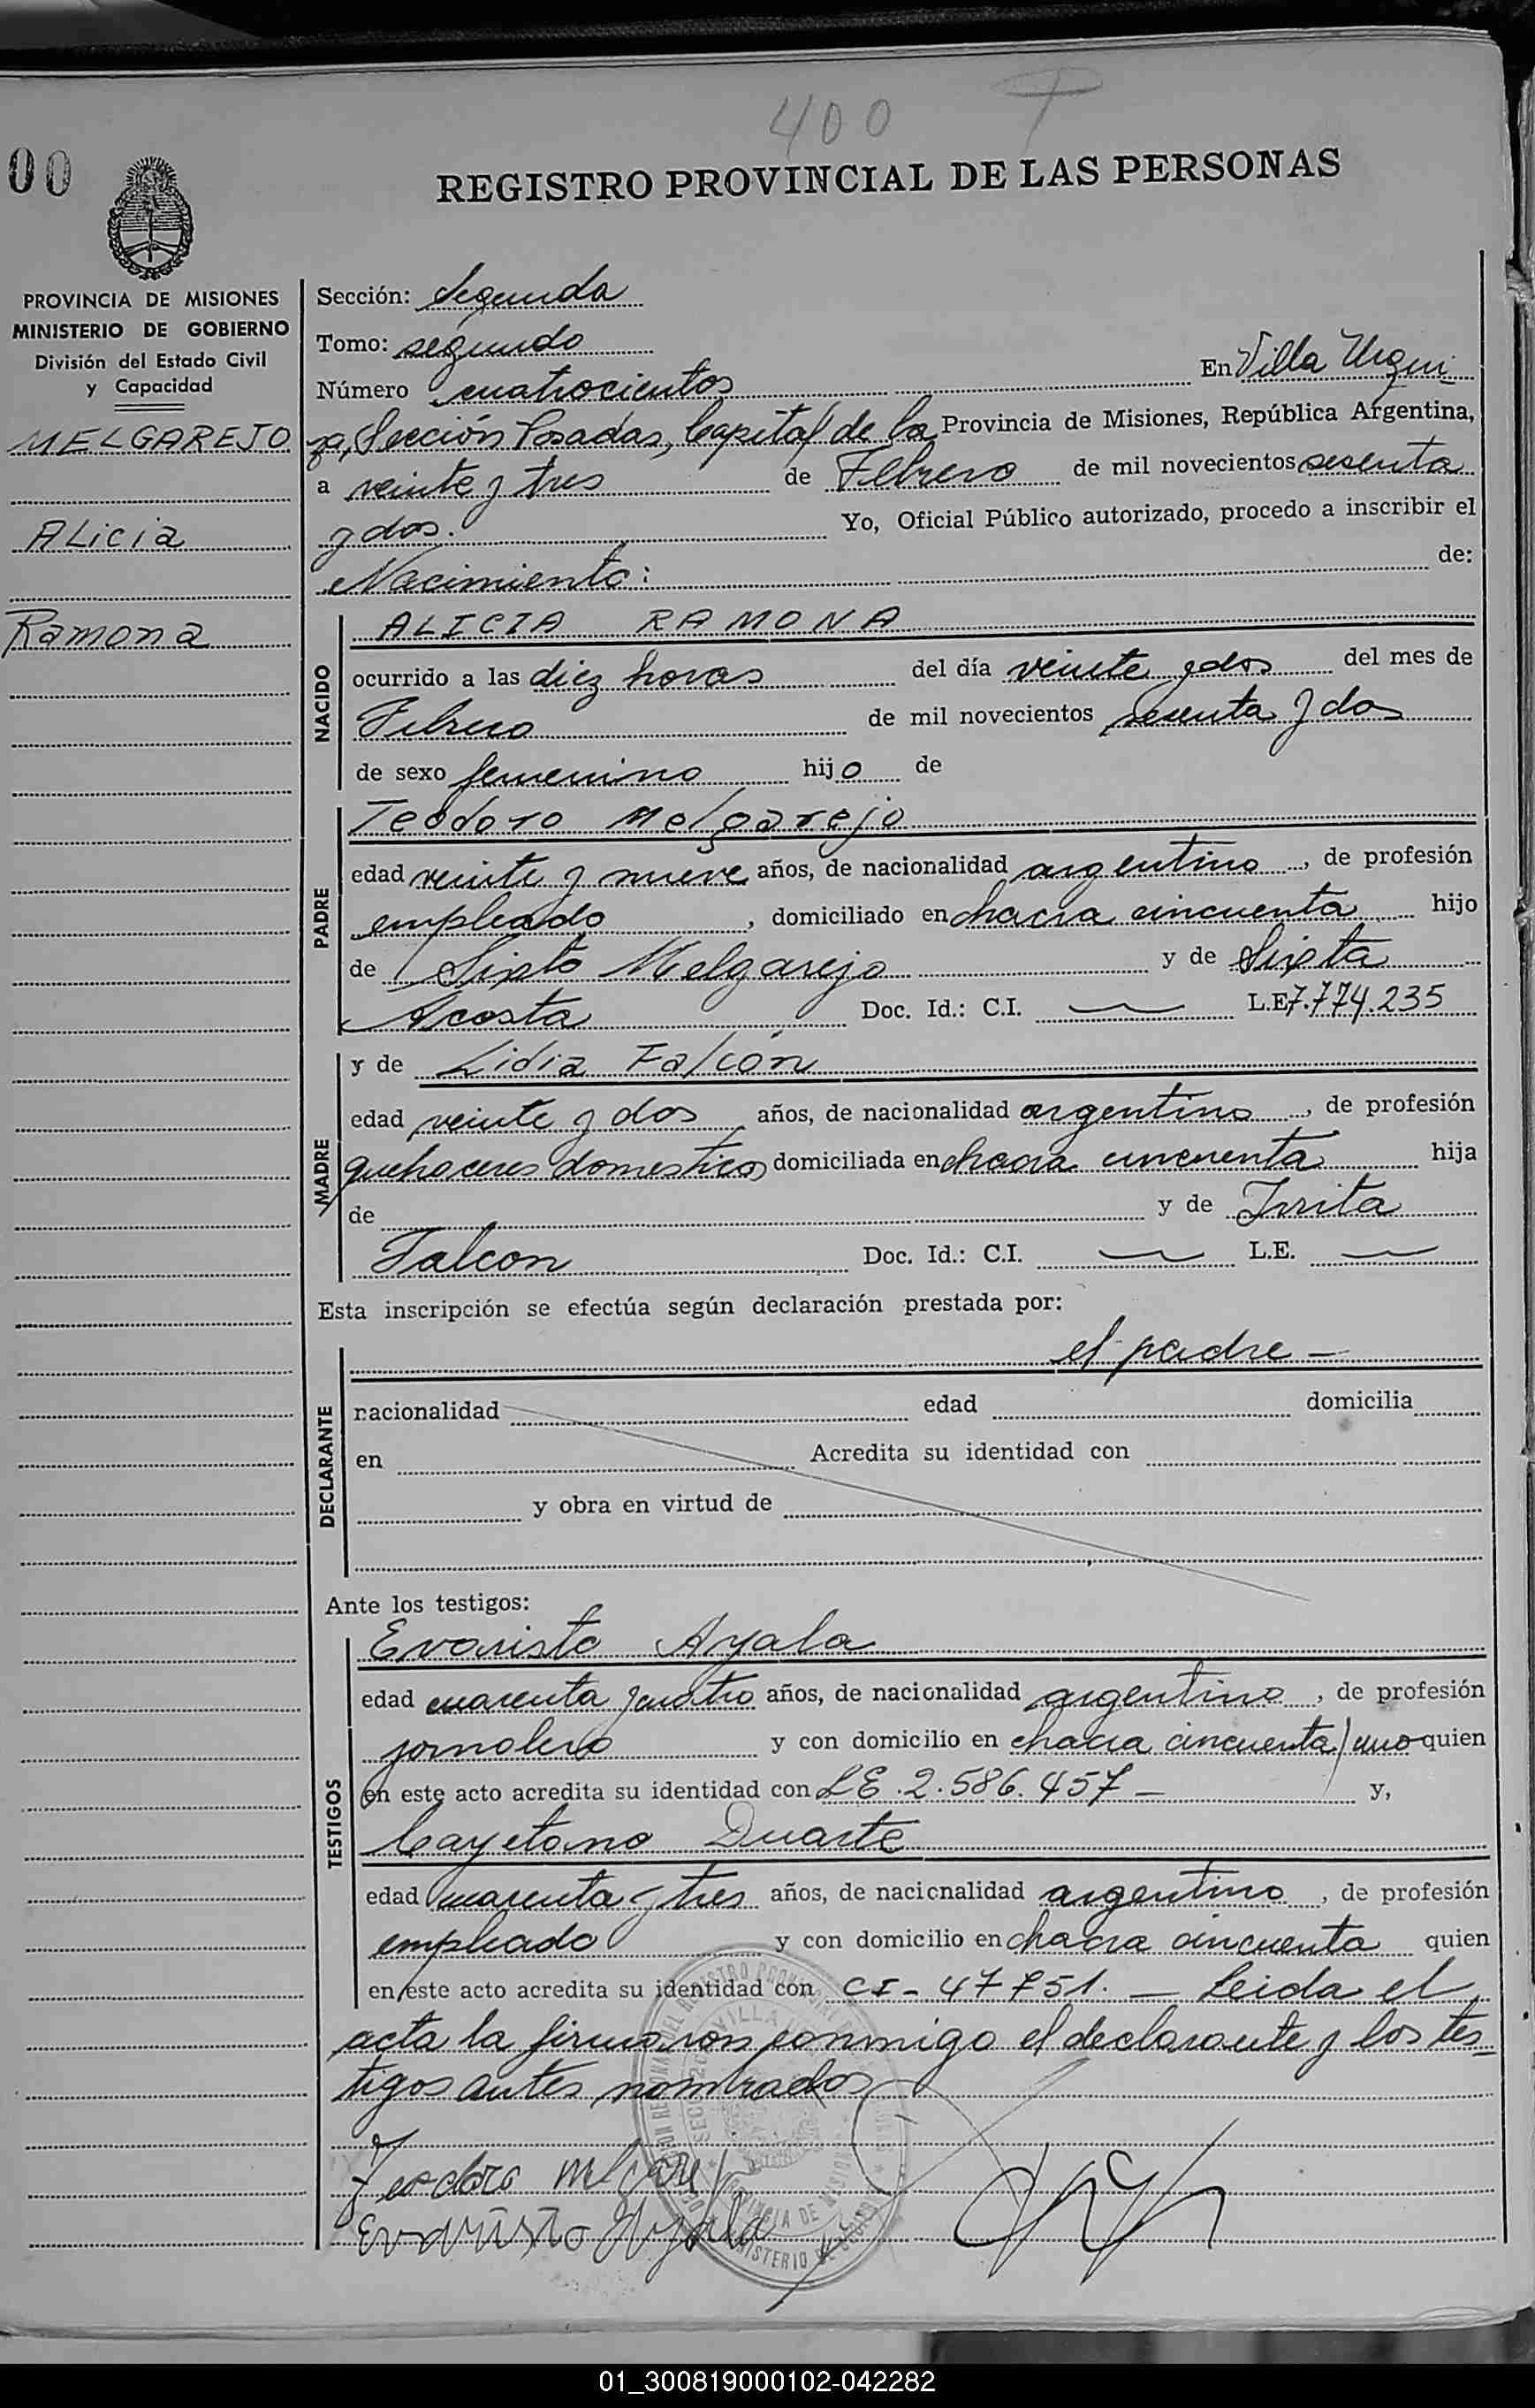 400
00
REGISTRO PROVINCIAL DE LAS PERSONAS
PROVINCIA DE MISIONES
MINISTERIO DE GOBIERNO
División del Estado Civil
y Capacidad
MELGAREJO
Alicia
Ramona
Sección: Segunda
Tomo: segundo
Número cuatrocientos En Villa Urqui
za, Sección Posadas, Capital de la Provincia de Misiones, República Argentina,
a veinte y tres de Febrero de mil novecientos sesenta
y dos. Yo, Oficial Público autorizado, procedo a inscribir el
Nacimiento: de:
NACIDO
ALICIA RAMONA
ocurrido a las diez horas del día veinte y dos del mes de
Febrero de mil novecientos sesenta y dos
de sexo femenino hijo de
PADRE
Teodoro Melgarejo
edad veinte y nueve años, de nacionalidad argentino, de profesión
empleado, domiciliado en chacra cincuenta hijo
de Sixto Melgarejo y de Sixta
Acosta Doc. Id.: C.I. L.E 7.774.235
MADRE
y de Lidia Falcón
edad veinte y dos años, de nacionalidad argentina, de profesión
quehaceres domesticos domiciliada en chacra cincuenta hija
de y de
Falcon Doc. Id.: C.I. L.E.
Esta inscripción se efectúa según declaración prestada por:
el padre -
DECLARANTE
nacionalidad edad domicilia
en Acredita su identidad con
y obra en virtud de
Ante los testigos:
TESTIGOS
Evaristo Ayala
edad cuarenta y cuatro años, de nacionalidad argentino, de profesión
jornalero y con domicilio en chacra cincuenta/uno quien
en este acto acredita su identidad con LE.2.586.457 - y,
Cayetano Duarte
edad cuarenta y tres años, de nacionalidad argentino, de profesión
empleado y con domicilio en chacra cincuenta quien
en este acto acredita su identidad con CI - - Leida el
acta la firmaron conmigo el declarante y los tes-
tigos antes nombrados
Teodoro
Evaristo Ayala
01_300819000102-042282